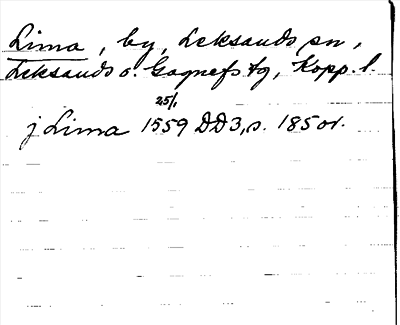 Lima, by, Leksands sn,
Leksands o. Gagnefs tg, Kopp. l.
25/1
j Lima 1559 DD3, s. 185 or.